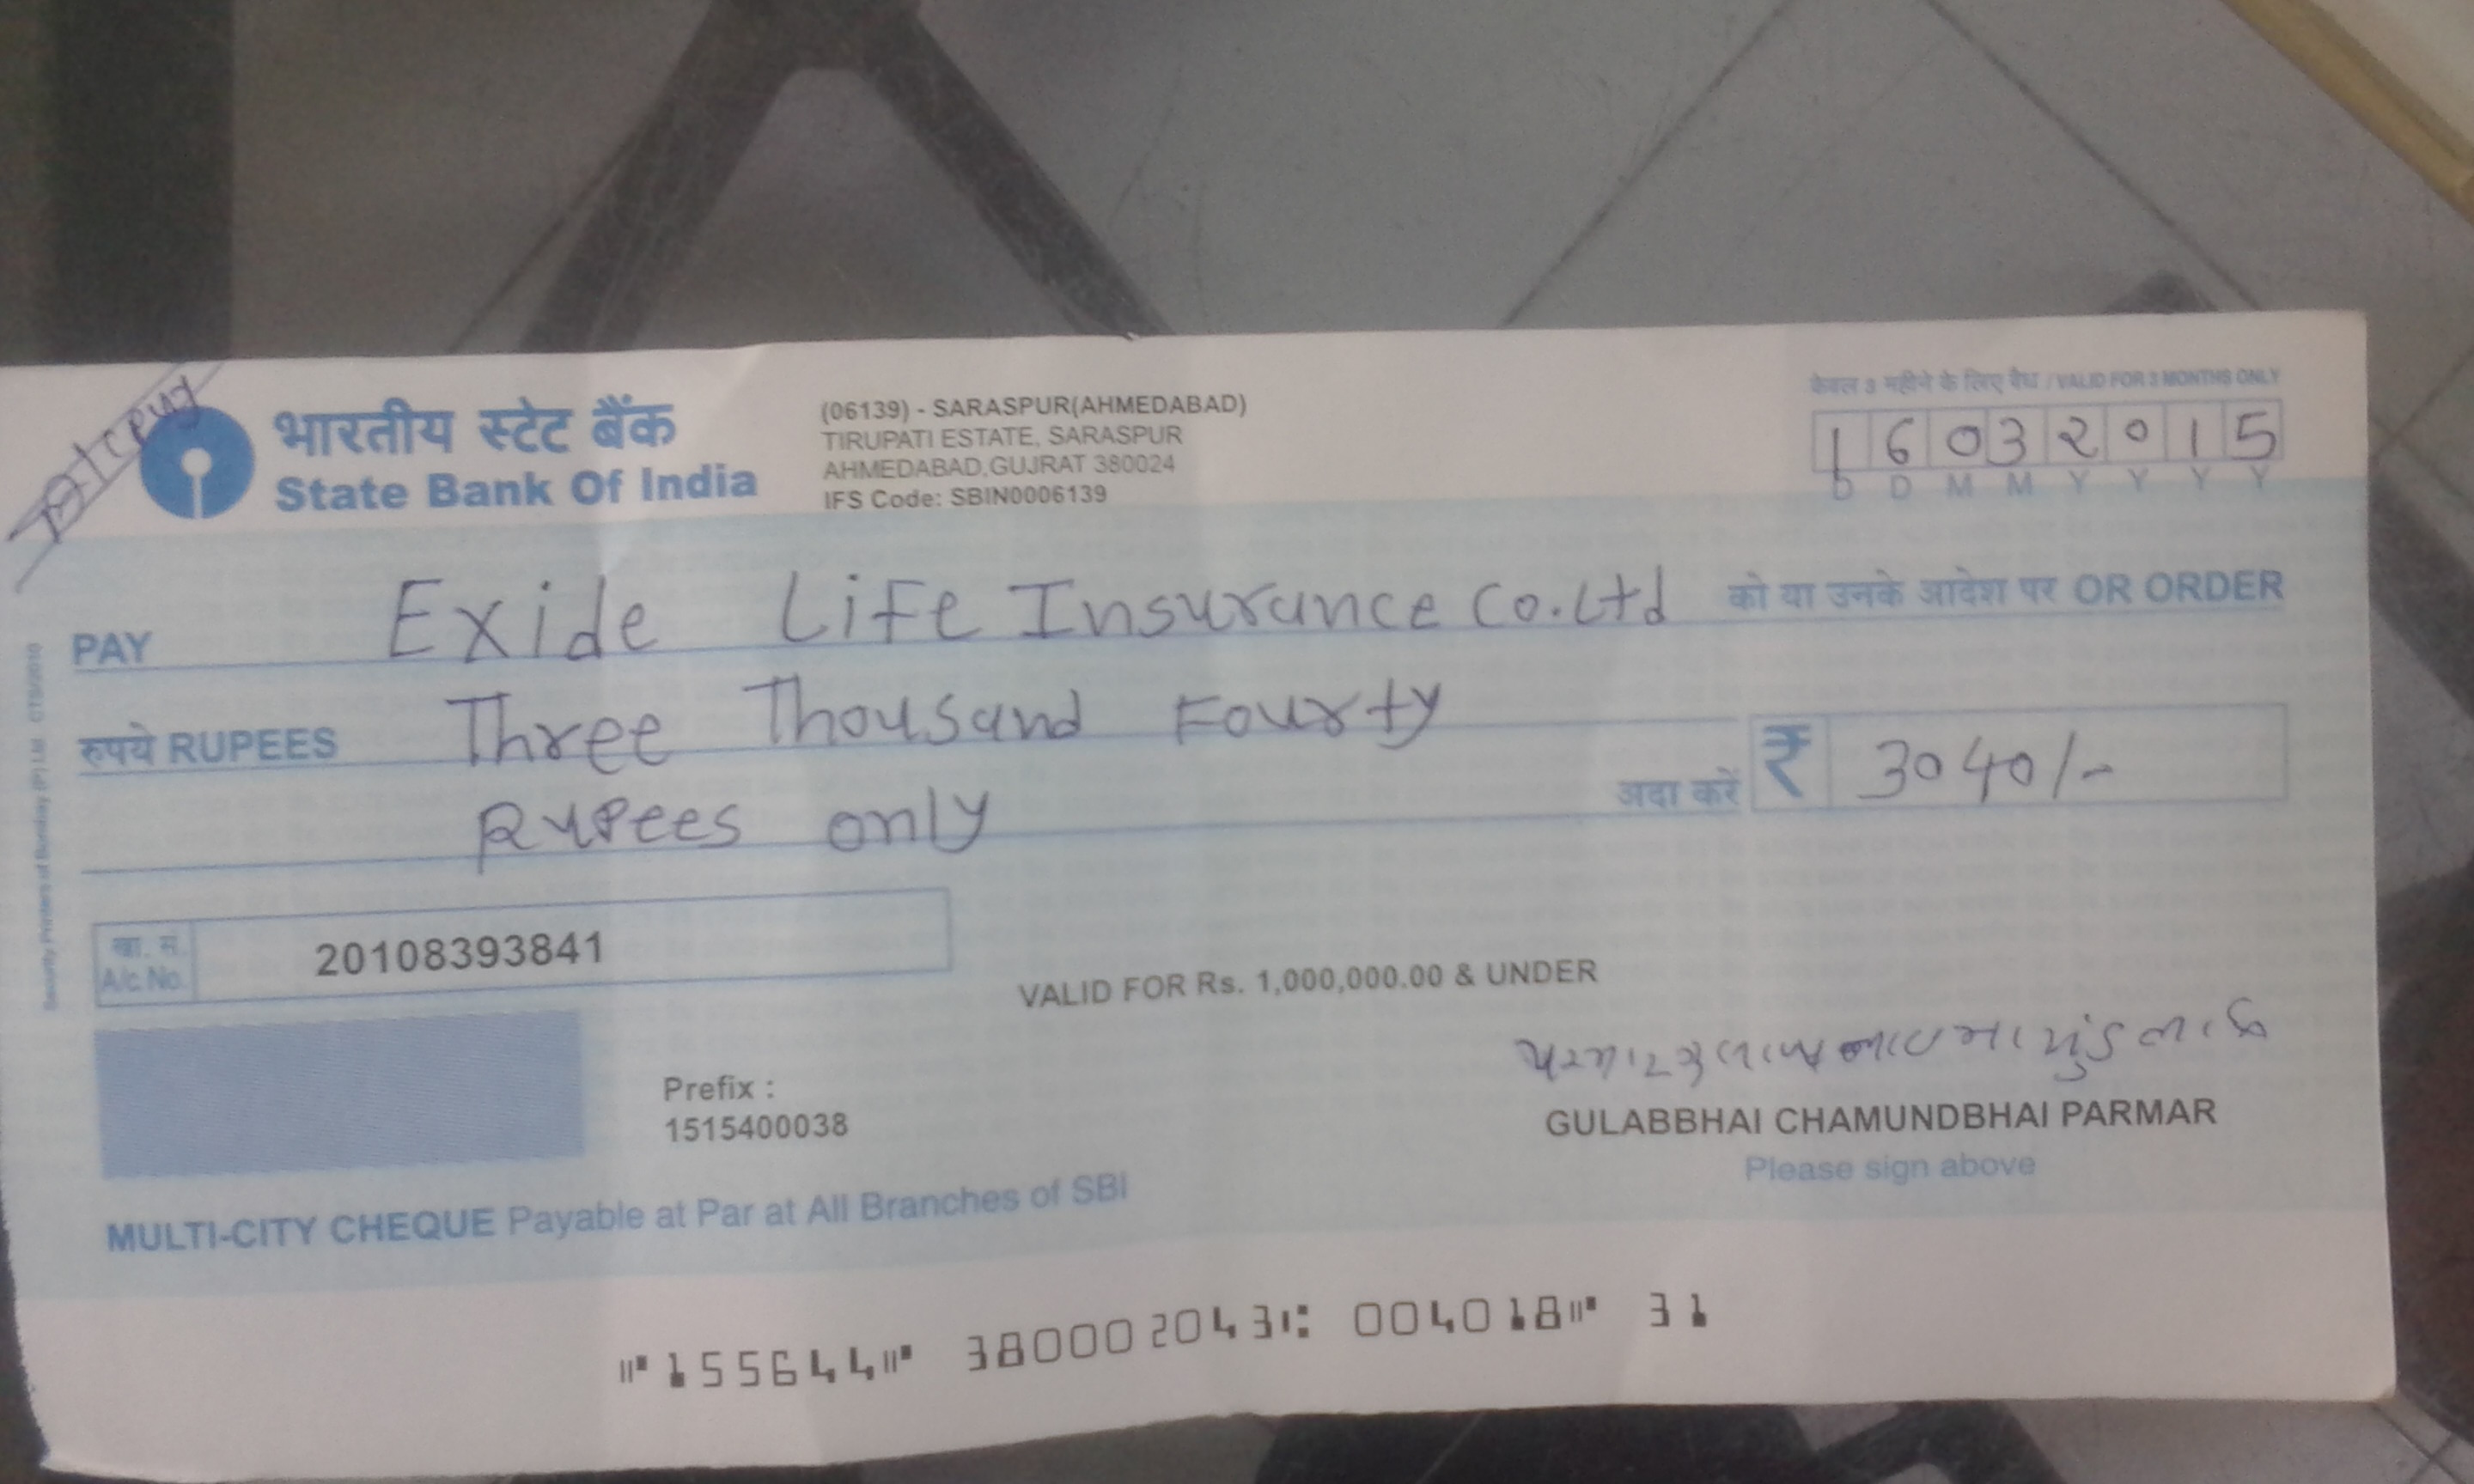 भारतीय स्टेट बैंक
State Bank Of India
(06139) - SARASPUR(AHMEDABAD)
TIRUPATI ESTATE, SARASPUR
AHMEDABAD,GUJRAT 380024
IFS Code: SBIN0006139
केवल 3 महीने के लिए वैध / VALID FOR 3 MONTHS ONLY
16032015
D D M M Y Y Y Y
PAY Exide Life Insurance Co.Ltd को या उनके आदेश पर OR ORDER
रुपये RUPEES Three Thousand Fourty
Rupees only अदा करें ₹ 3040/-
खा. सं.
A/c No. 20108393841
VALID FOR Rs. 1,000,000.00 & UNDER
Prefix :
1515400038
GULABBHAI CHAMUNDBHAI PARMAR
Please sign above
MULTI-CITY CHEQUE Payable at Par at All Branches of SBI
⑈155644⑈ 380002043⑆ 004018⑈ 31